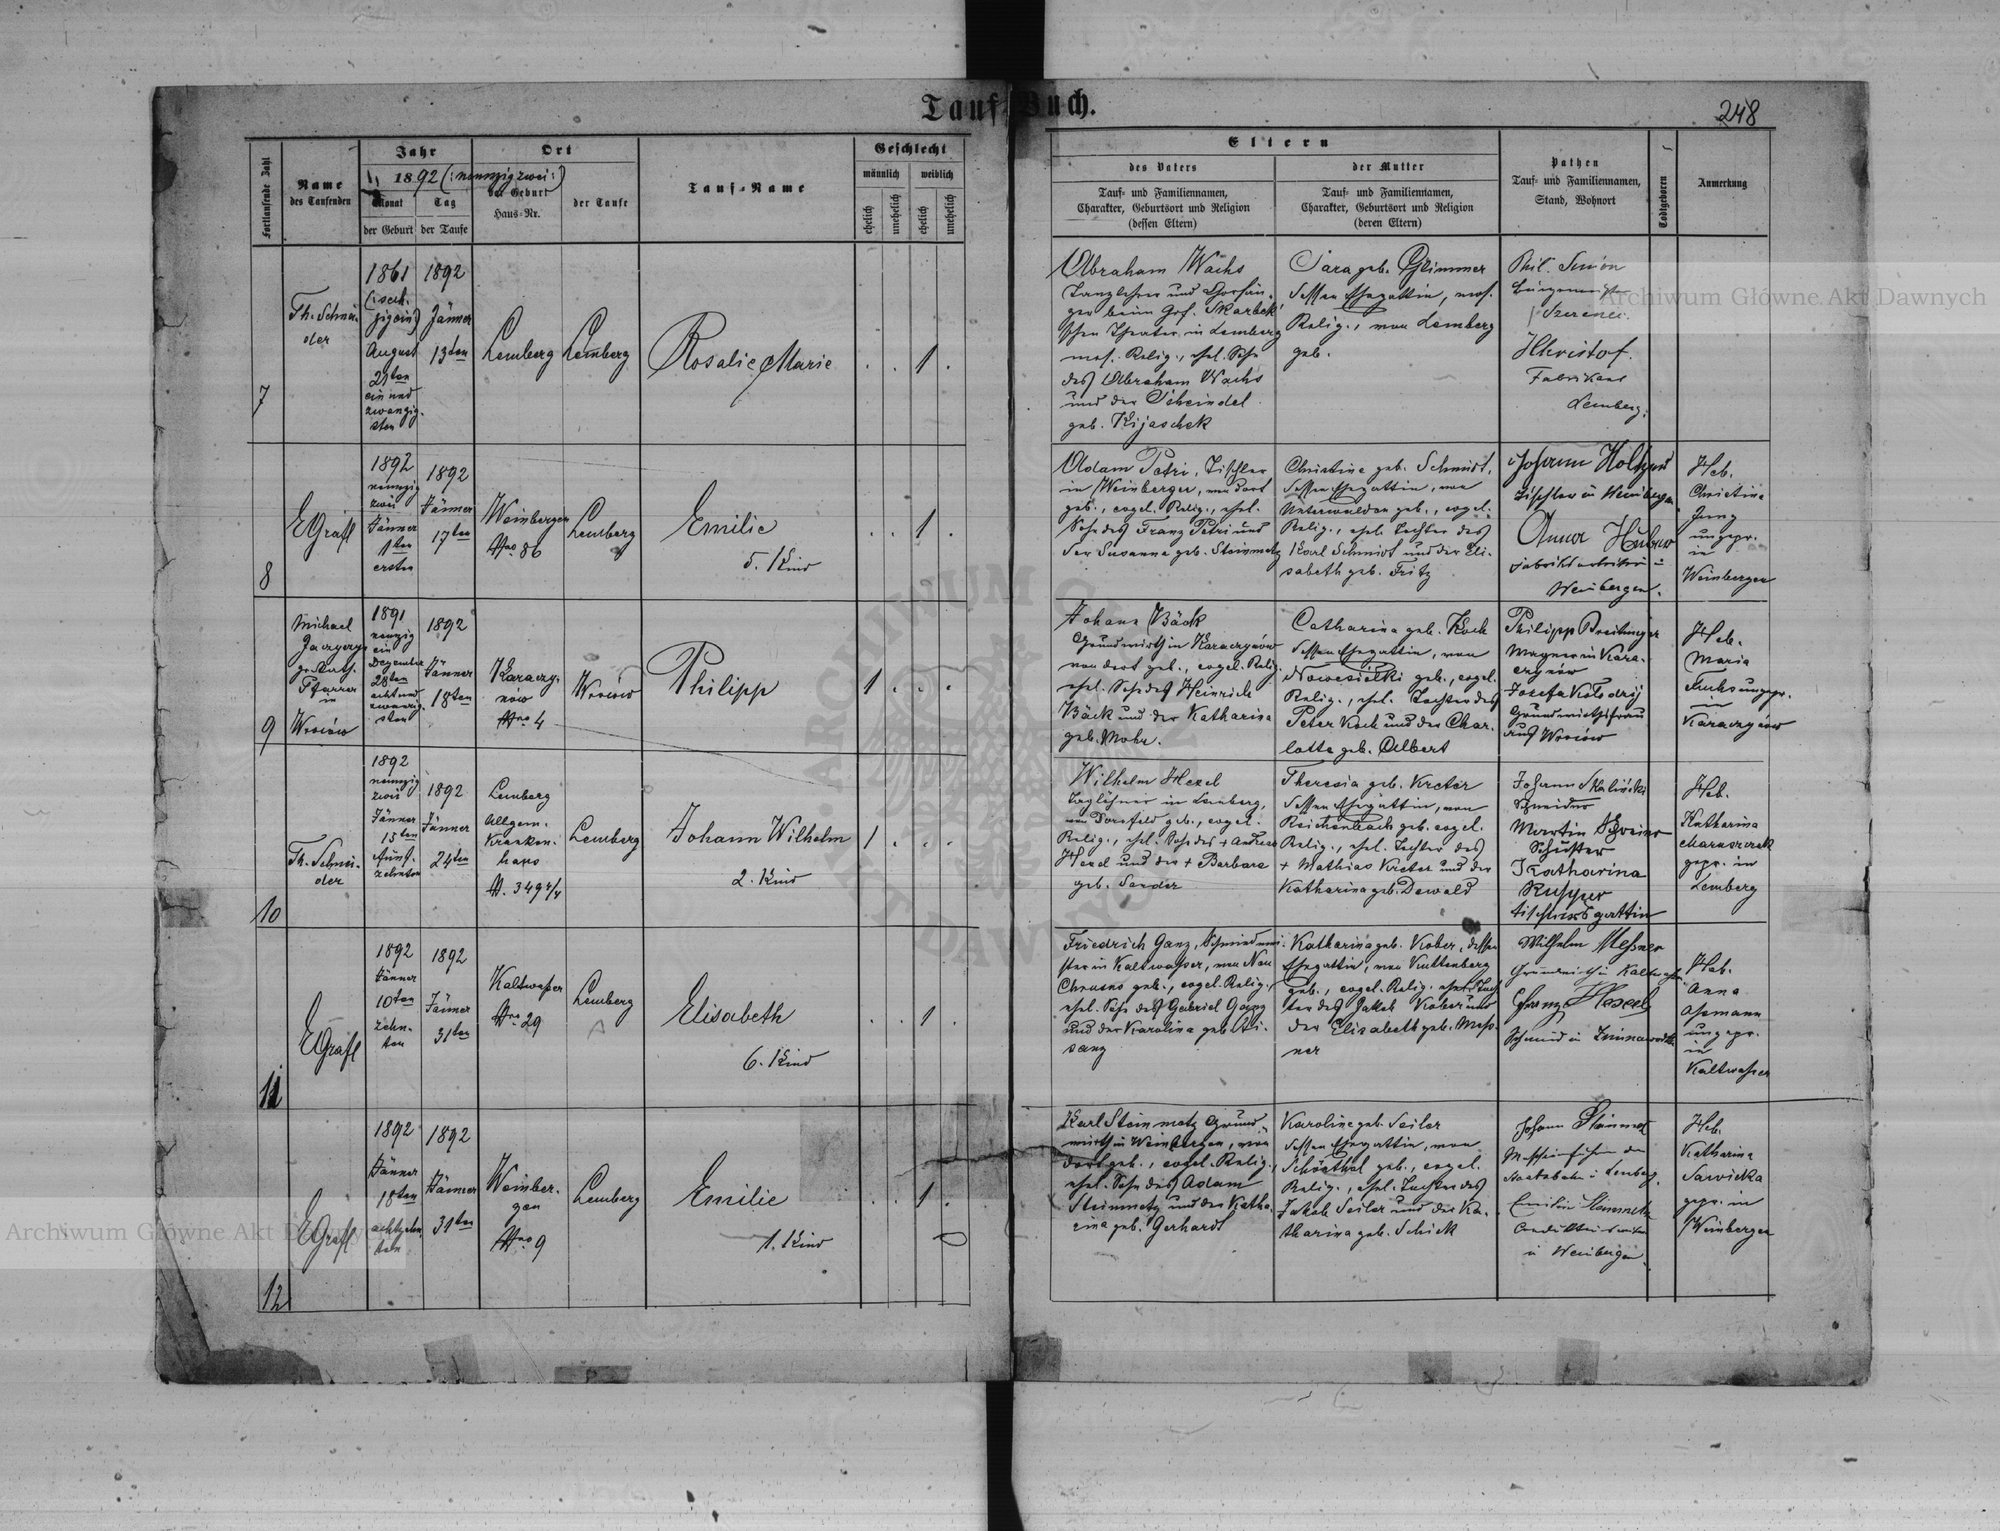 Tauf-Buch.
248
Fortlaufende Zahl
Name
des Taufenden
Jahr
1892 (: neunzig zwei :)
Monat
der Geburt
Tag
der Taufe
Ort
der Geburt
Haus-Nr.
der Taufe
Tauf-Name
Geschlecht
männlich
weiblich
ehelich
unehelich
ehelich
unehelich
Eltern
des Vaters
Tauf- und Familiennamen,
Charakter, Geburtsort und Religion
(dessen Eltern)
der Mutter
Tauf- und Familiennamen,
Charakter, Geburtsort und Religion
(deren Eltern)
Pathen
Tauf- und Familiennamen,
Stand, Wohnort
Todtgeboren
Anmerkung
7
Th. Schnei-
der
1861
August
21ten
ein und
zwanzig-
sten
1892
Jänner
13ten
Lemberg
Lemberg
Rosalie Marie
1
Abraham Wachs
Tanzlehrer und Chorsän-
ger beim Grf. Skarbek'
schen Theater in Lemberg
mos. Relig., ehel. Sohn
des Abraham Wachs
und der Scheindel
geb. Kijaschek
Sara geb. Glimmer
dessen Ehegattin, mos.
Relig., von Lemberg
geb.
Christof
Fabrikant
Lemberg.
8
EGräfl
1892
neunzig
zwei
Jänner
1ten
ersten
1892
Jänner
17ten
Weinbergen
Nro 86
Lemberg
Emilie
5. Kind
1
Adam Petri, Tischler
in Weinbergen, von dort
geb., evgl. Relig., ehel.
Sohn des Franz Petri und
der Susanna geb. Steinmetz
Christine geb. Schmidt,
dessen Ehegattin, von
Unterwalden geb., evgel.
Relig., ehel. Tochter des
Karl Schmidt und der Eli-
sabeth geb. Fritz
Johann
Tischler in Weinbergen
Anna Huber
Fabriksarbeiterin in
Weinbergen.
Heb.
Christina
Jung
ungepr.
in
Weinbergen
9
Michael
gr. kath.
Pfarrer
in
Wrocow
1891
neunzig
ein
Dezember
28ten
acht und
zwanzig-
sten
1892
Jänner
18ten
Karaczy-
nów
Nro 4
Philipp
1
Johann Bäck
Grundwirth in Karaczynów
von dort geb., evgel. Relig.
ehel. Sohn des Heinrich
Bäck und der Katharina
geb. Mohr.
Catharina geb. Koch
dessen Ehegattin, von
Nowesiolki geb., evgel.
Relig., ehel. Tochter des
Peter Koch und der Char-
lotte geb. Albert
Philipp Breitmeyer
Wagner in Kara-
czynów
Josefa Kołodzij
Grundwirthsfrau
aus
Heb.
Maria
ungepr.
in
Karaczynów
10
Th. Schnei-
der
1892
neunzig
zwei
Jänner
15ten
fünf-
zehnten
1892
Jänner
24ten
Lemberg
Allgem.
Kranken-
haus
N. 349 2/4
Lemberg
Johann Wilhelm
2. Kind
1
Wilhelm Hexel
Taglöhner in Lemberg,
von Dornfeld geb., evgel.
Relig., ehel. Sohn des + Andreas
Hexel und der + Barbara
geb. Sander
Theresia geb. Kreter
dessen Ehegattin, von
Reichenbach geb. evgel.
Relig., ehel. Tochter des
+ Mathias Kreter und der
Katharina geb. Dewald
Johann Skalinski
Schneider
Martin
Schuster
Katharina
Tischlersgattin
Heb.
Katharina
gepr. in
Lemberg
11
EGräfl
1892
Jänner
10ten
zehn-
ten
1892
Jänner
31ten
Kaltwasser
Nro 29
Lemberg
Elisabeth
6. Kind
1
Friedrich Ganz, Schmiedmei-
ster in Kaltwasser, von Neu
Chrusno geb., evgel. Relig.,
ehel. Sohn des Gabriel Ganz
und der Karolina geb.
Katharina geb. Kober, dessen
Ehegattin, von Kuttenberg
geb., evgel. Relig., ehel. Toch-
ter des Jakob Kober und
der Elisabeth geb. Mess-
ner
Wilhelm Messner
Grundwirth in Kaltwasser
Franz
Schmied in Zimnawoda
Heb.
Anna
Assmann
ungepr.
in
Kaltwasser
12
EGräfl
1892
Jänner
18ten
achtzehn-
ten
1892
Jänner
31ten
Weinber-
gen
Nro 9
Lemberg
Emilie
1. Kind
1
Karl Steinmetz Grund-
wirth in Weinbergen, von
dort geb., evgel. Relig.,
ehel. Sohn des Adam
Steinmetz und der Katha-
rina geb. Gerhardt
Karoline geb. Seiler
dessen Ehegattin, von
Schönthal geb., evgel.
Relig., ehel. Tochter des
Jakob Seiler und der Ka-
tharina geb. Schick
Johann Steinmetz
Maschinführer der
Staatsbahn in Lemberg,
Emilie Steinmetz
in Weinbergen.
Heb.
Katharina
Sawicka
gepr. in
Weinbergen
Archiwum Główne Akt Dawnych
Archiwum Główne Akt Dawnych
ARCHIWUM GŁÓWNE AKT DAWNYCH